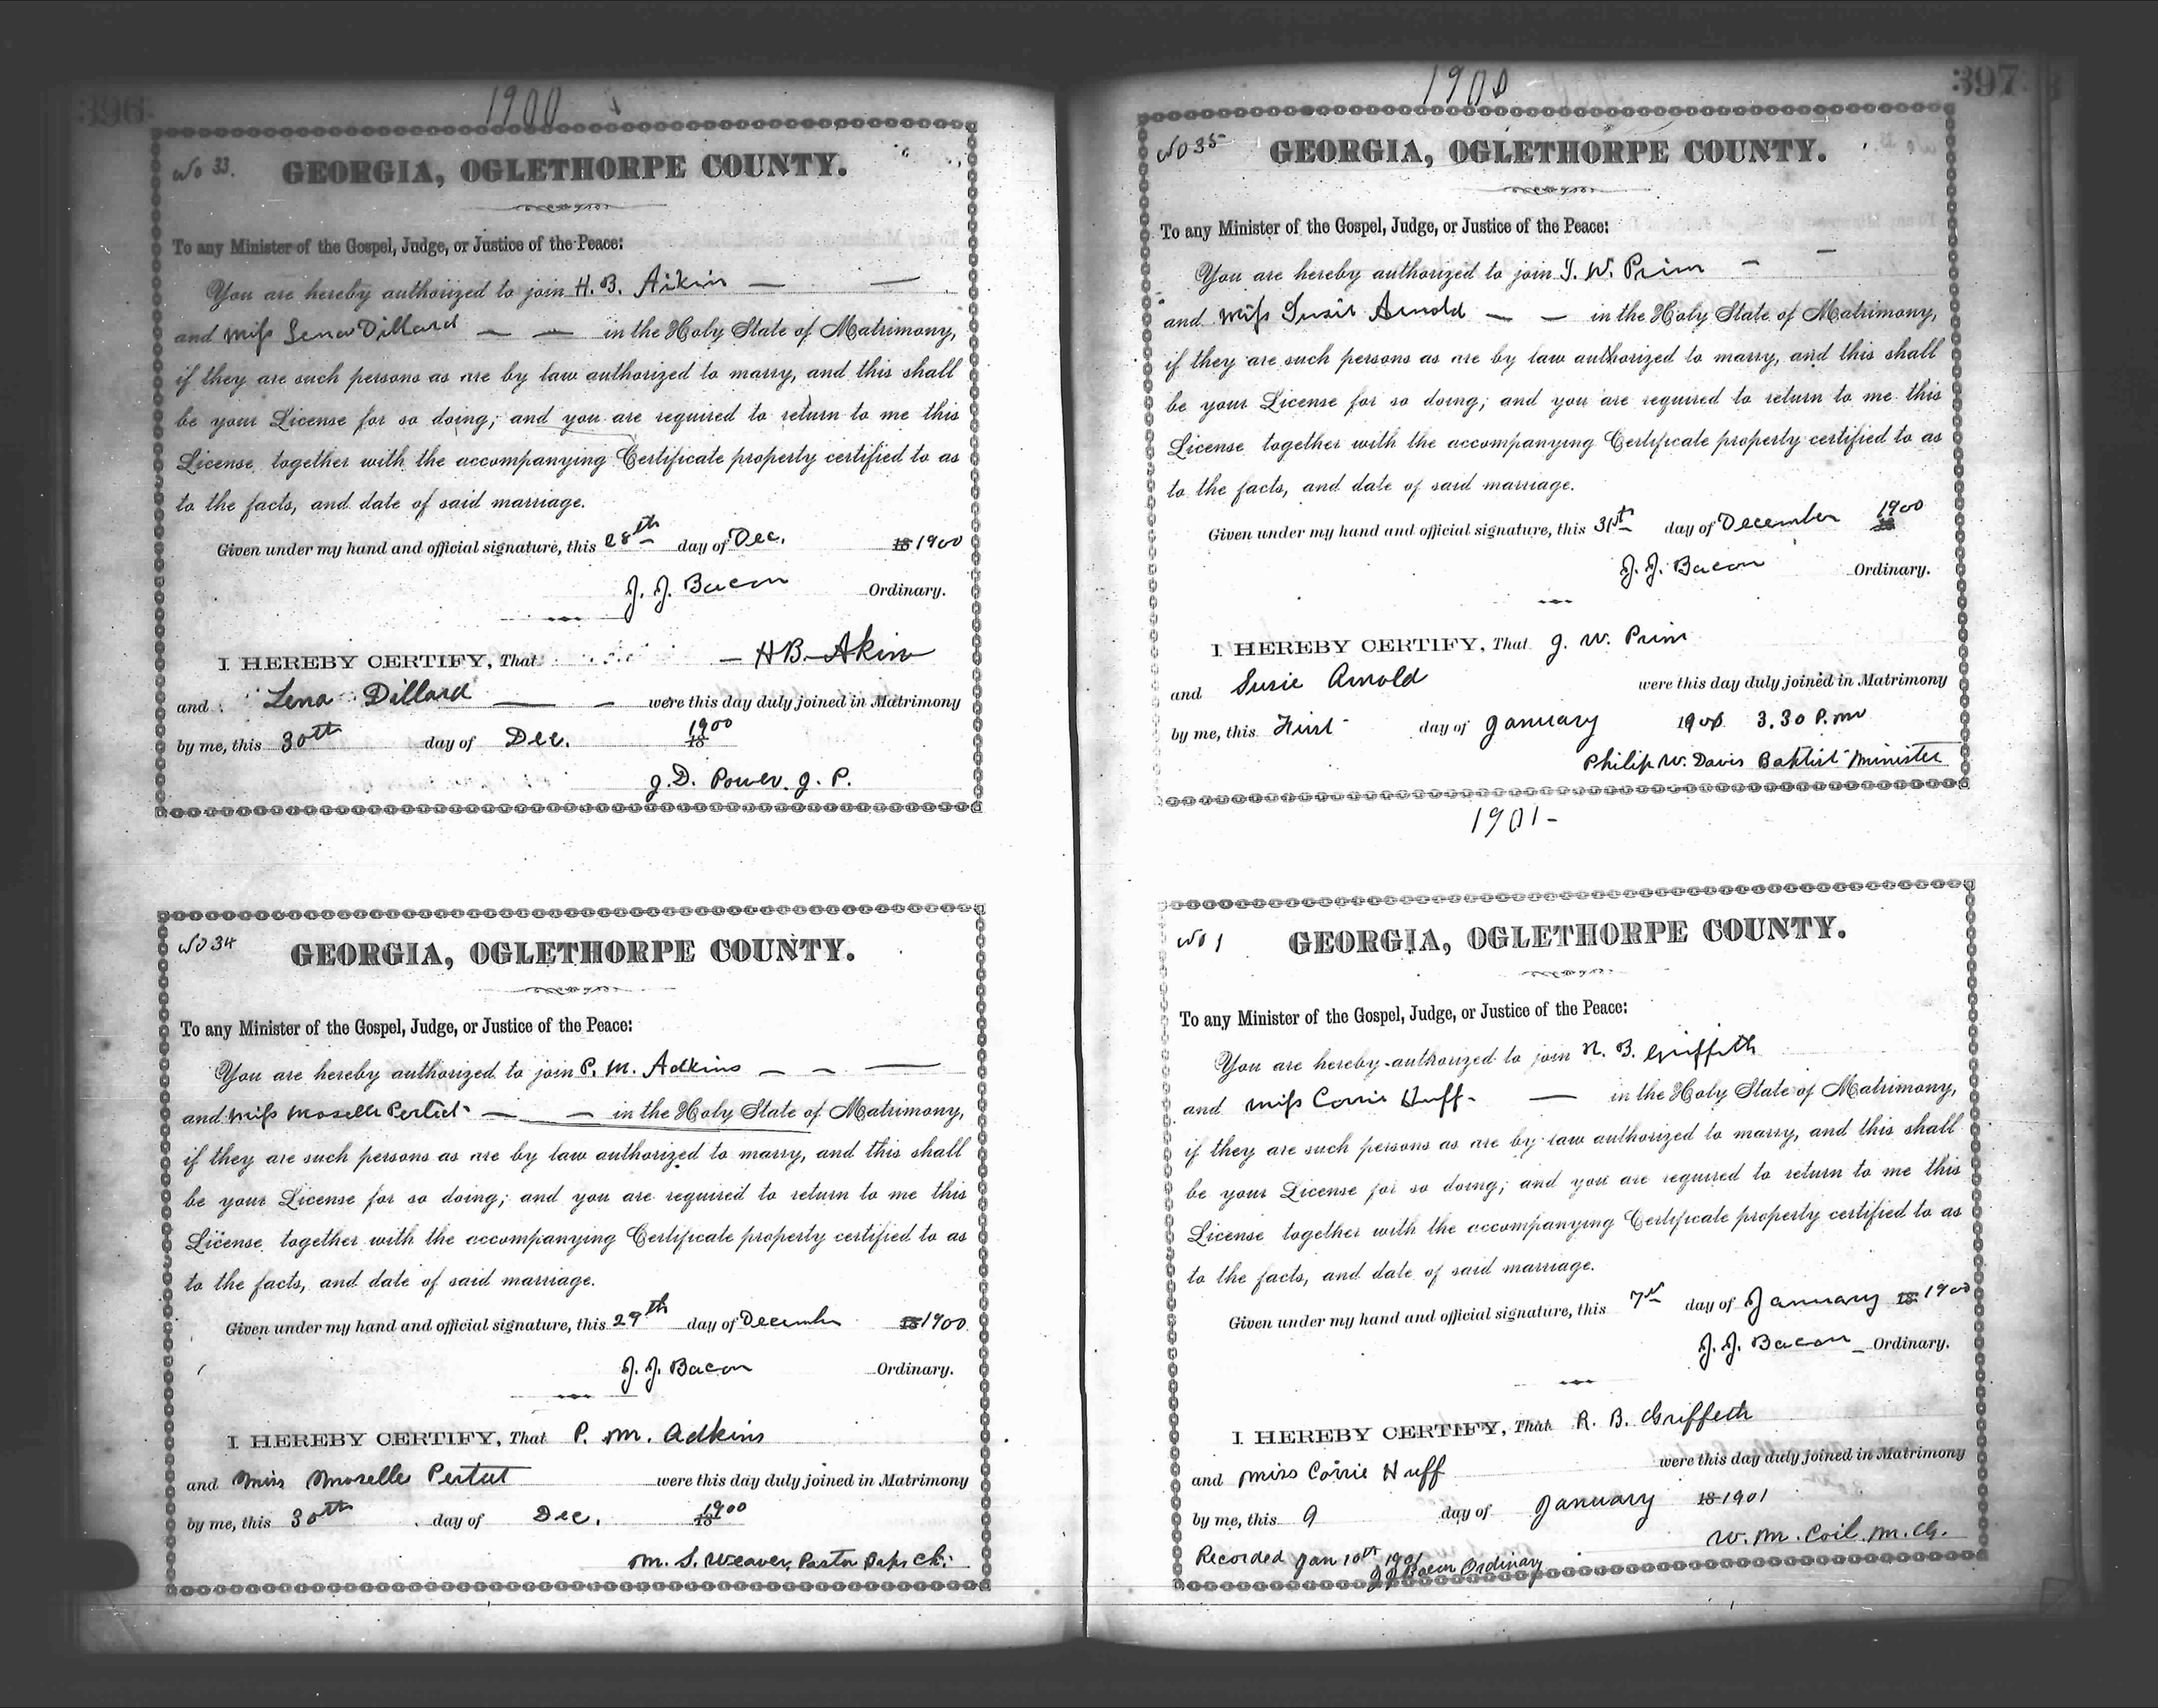 396
1900
No 33.
GEORGIA, OGLETHORPE COUNTY.
To any Minister of the Gospel, Judge, or Justice of the Peace:
You are hereby authorized to join H. B. Aikin
and Miss Lena Dillard in the Holy State of Matrimony,
if they are such persons as are by law authorized to marry, and this shall
be your License for so doing; and you are required to return to me this
License together with the accompanying Certificate property certified to as
to the facts, and date of said marriage.
Given under my hand and official signature, this 28th day of Dec. 18 1900
J. J. Bacon Ordinary.
I HEREBY CERTIFY, That H B Akin
and Lena Dillard were this day duly joined in Matrimony
by me, this 30th day of Dec. 18 1900
J. D. Power. J. P.
No 34
GEORGIA, OGLETHORPE COUNTY.
To any Minister of the Gospel, Judge, or Justice of the Peace:
You are hereby authorized to join P. M. Adkins
and Miss Moselle in the Holy State of Matrimony,
if they are such persons as are by law authorized to marry, and this shall
be your License for so doing; and you are required to return to me this
License together with the accompanying Certificate property certified to as
to the facts, and date of said marriage.
Given under my hand and official signature, this 29th day of December 18 1900
J. J. Bacon Ordinary.
I HEREBY CERTIFY, That P. M. Adkins
and Miss Moselle were this day duly joined in Matrimony
by me, this 30th day of Dec. 18 1900
M. S. Weaver, Pastor Baps Ch.
397
1900
No 35
GEORGIA, OGLETHORPE COUNTY.
To any Minister of the Gospel, Judge, or Justice of the Peace:
You are hereby authorized to join J. W. Prim
and Miss Susie Arnold in the Holy State of Matrimony,
if they are such persons as are by law authorized to marry, and this shall
be your License for so doing; and you are required to return to me this
License together with the accompanying Certificate property certified to as
to the facts, and date of said marriage.
Given under my hand and official signature, this 31st day of December 18 1900
J. J. Bacon Ordinary.
I HEREBY CERTIFY, That J. W. Prim
and Susie Arnold were this day duly joined in Matrimony
by me, this First day of January 3.30 P.m
Philip W. Davis Baptist Minister
1901-
No 1
GEORGIA, OGLETHORPE COUNTY.
To any Minister of the Gospel, Judge, or Justice of the Peace:
You are hereby authorized to join R. B. Griffeth
and Miss Corrie Huff. in the Holy State of Matrimony,
if they are such persons as are by law authorized to marry, and this shall
be your License for so doing; and you are required to return to me this
License together with the accompanying Certificate property certified to as
to the facts, and date of said marriage.
Given under my hand and official signature, this 7th day of January 18 1900
J. J. Bacon Ordinary.
I HEREBY CERTIFY, That R. B. Griffeth
and Miss Corrie Huff were this day duly joined in Matrimony
by me, this 9 day of January 18 1901
W. M. Coil. M. G.
Recorded Jan 10th 1901
J J Bacon Ordinary